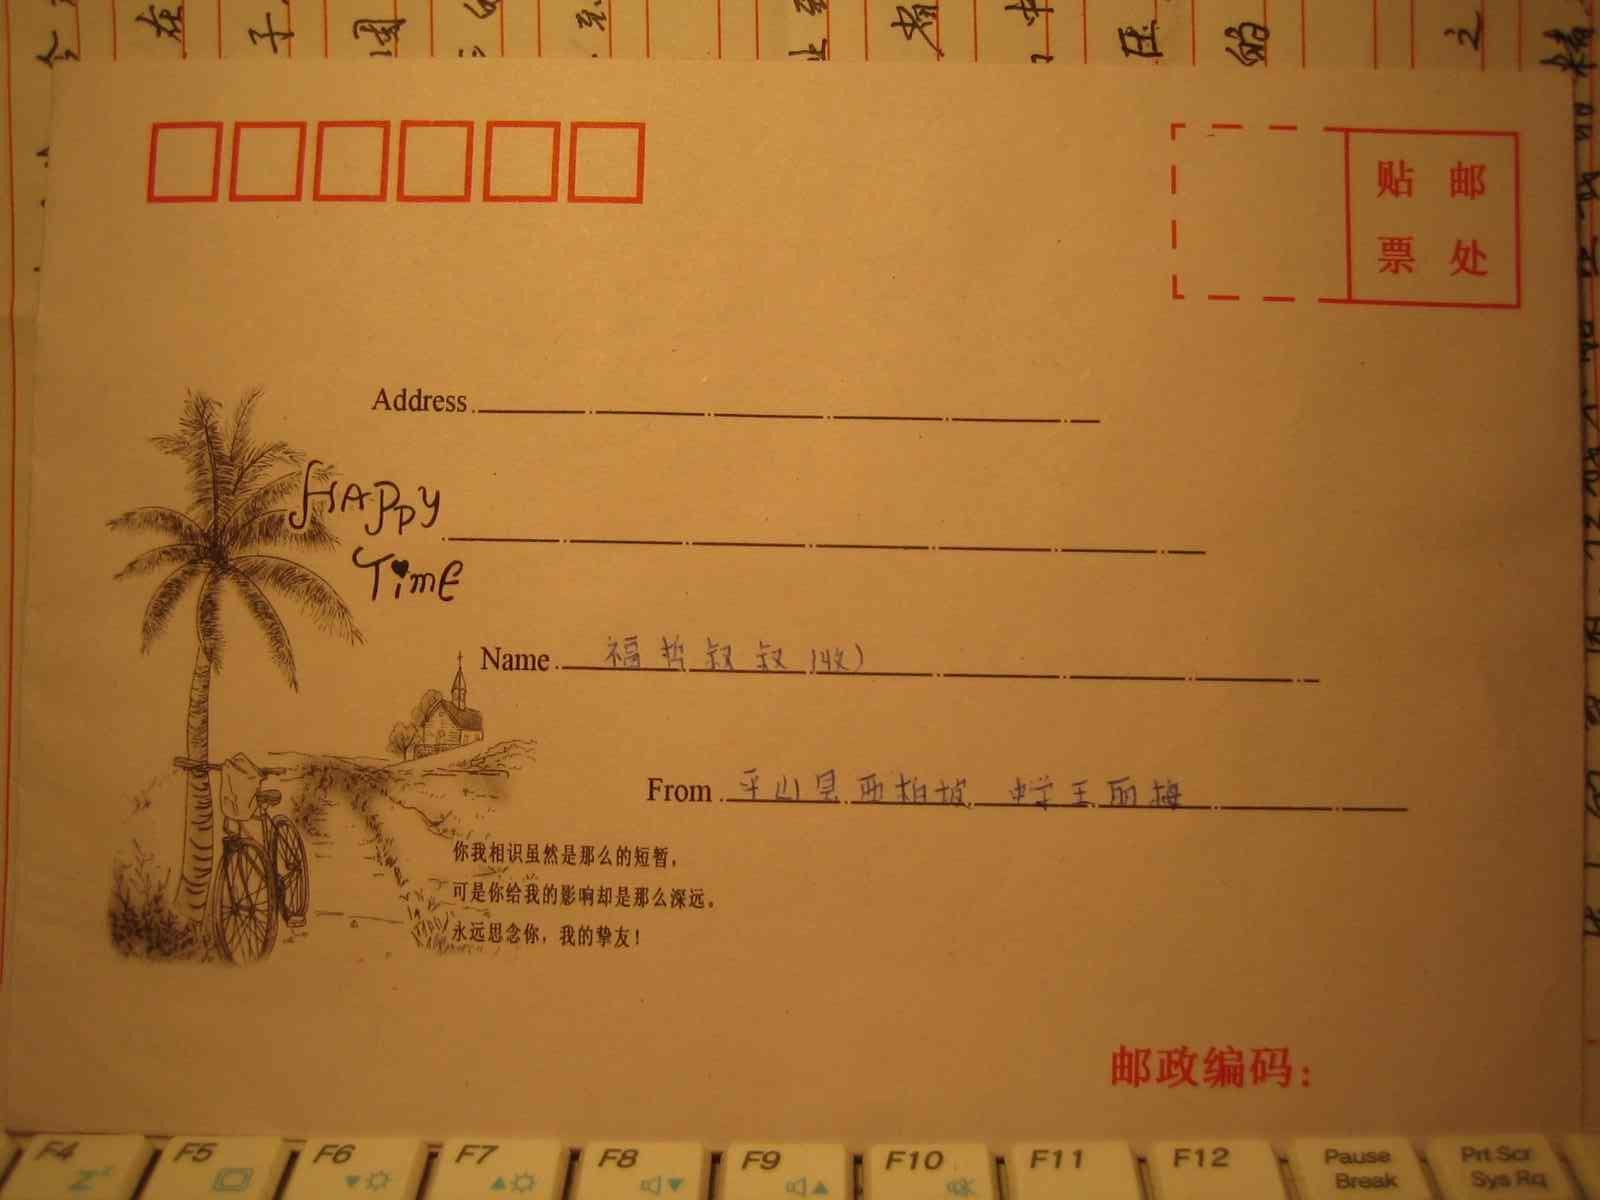 今 在 子 国 者 中 压 的 之 精
贴 邮
票 处
Address
HAPPY
TiME
Name 福哲叔叔(收)
From 平山县西柏坡 中学王丽梅
你我相识虽然是那么的短暂,
可是你给我的影响却是那么深远。
永远思念你,我的挚友!
邮政编码:
F4 F5 F6 F7 F8 F9 F10 F11 F12 Pause Prt Scr
Break Sys Rq